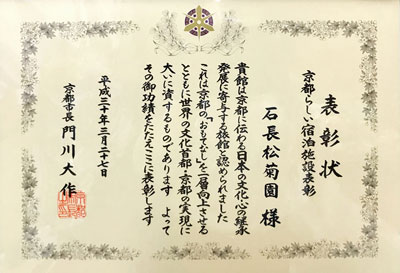 表彰状
京都らしい宿泊施設表彰
石長松菊園 様
貴館は京都に伝わる日本の文化心の継承
発展に寄与する旅館と認められました
これは京都の「おもてなし」を一層向上させる
とともに世界の文化首都・京都の実現に
大いに資するものであります よって
その御功績をたたえここに表彰します
平成三十年三月二十七日
京都市長 門川大作